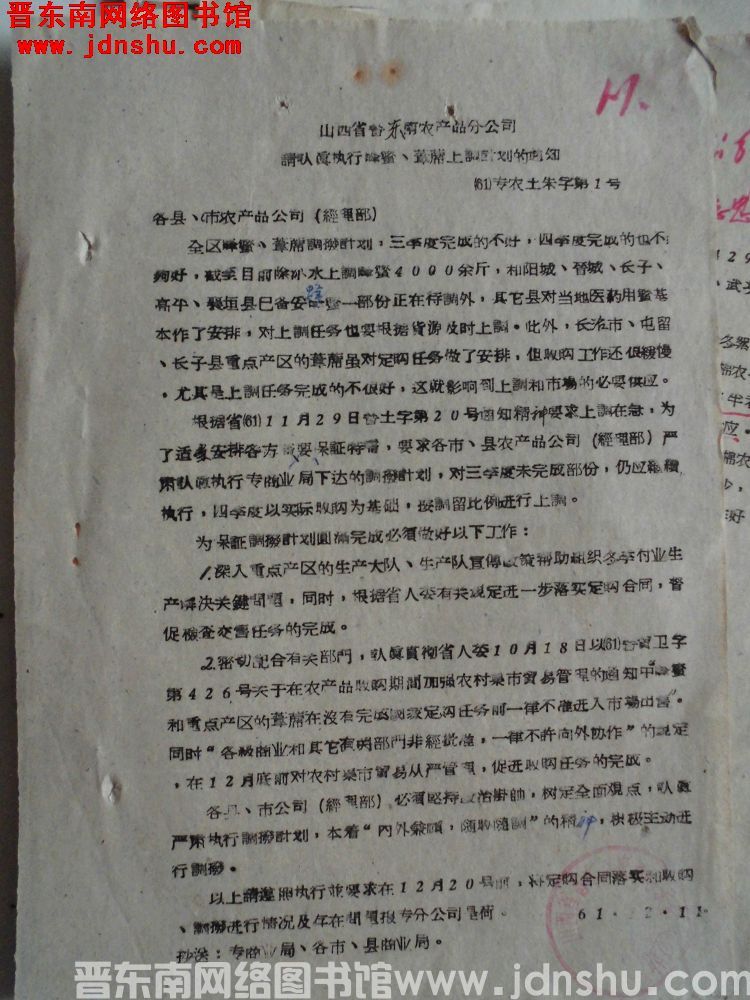 晋东南网络图书馆
www.jdnshu.com
17.
山西省晋东南农产品分公司
請认眞执行蜂蜜、葦蓆上調計划的通知
(61)专农土朱字第1号
各县、市农产品公司(經理部)
全区蜂蜜、葦蓆調撥計划，三季度完成的不好，四季度完成的也不
夠好，截至目前除冰水上調蜂蜜4000余斤，和阳城、晉城、长子、
高平、襄垣县已备妥蜂蜜一部份正在待調外，其它县对当地医葯用蜜基
本作了安排，对上調任务也要根据貨源及时上調。此外，长治市、屯留
、长子县重点产区的葦蓆虽对定购任务做了安排，但收购工作还很緩慢
。尤其是上調任务完成的不很好，这就影响到上調和市場的必要供应。
根据省(61)11月29日晉土字第20号通知精神要求上調在急，为
了适当安排各方需要保証特需，要求各市、县农产品公司(經理部)严
肃认眞执行专商业局下达的調撥計划，对三季度未完成部份，仍应継續
执行，四季度以实际收购为基础，按調留比例进行上調。
为保証調撥計划圓滿完成必須做好以下工作：
1.深入重点产区的生产大队、生产队宣傳政策帮助組织冬季付业生
产解决关鍵問題，同时，根据省人委有关規定进一步落实定购合同，督
促檢查交售任务的完成。
2.密切配合有关部門，认眞貫彻省人委10月18日以(61)晉貿卫字
第426号关于在农产品收购期間加强农村集市貿易管理的通知中“蜂蜜
和重点产区的葦蓆在沒有完成国家定购任务前一律不准进入市場出售”。
同时“各級商业和其它有关部門非經批准，一律不許向外协作”的規定
，在12月底前对农村集市貿易从严管理，促进收购任务的完成。
各县、市公司(經理部)必須堅持政治掛帥，树定全面覌点，认眞
严肃执行調撥計划，本着“內外兼顧，随收随調”的精神，积极主动进
行調撥。
以上請遵照执行並要求在12月20号前，将定购合同落实和收购
、調撥进行情况及存在問題报专分公司是荷。 61.12.11.
抄送：专商业局、各市、县商业局。
晋东南网络图书馆 www.jdnshu.com